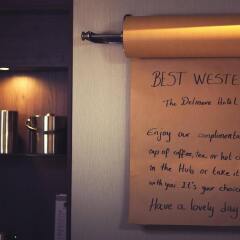 BEST WESTE
The Delmere Hotel
Enjoy our complimenta
cup of coffee, tea or hot c
in the Hub or take it
with you. It's your choice
Have a lovely day